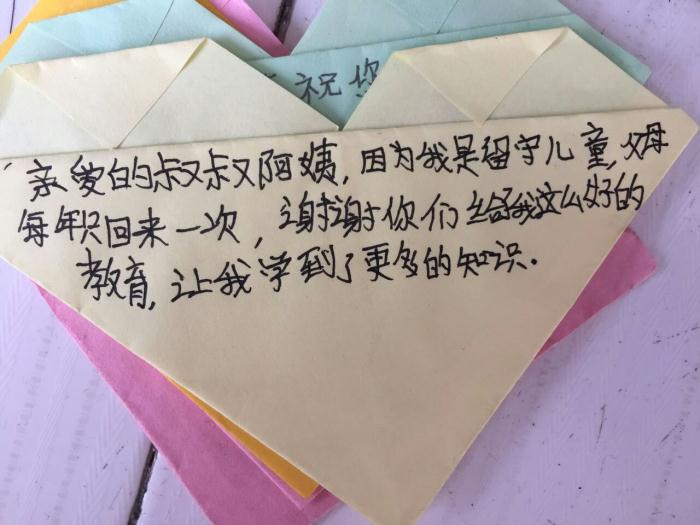 祝您
亲爱的叔叔阿姨,因为我是留守儿童,父母
每年只回来一次,谢谢你们给我这么好的
教育,让我学到了更多的知识.